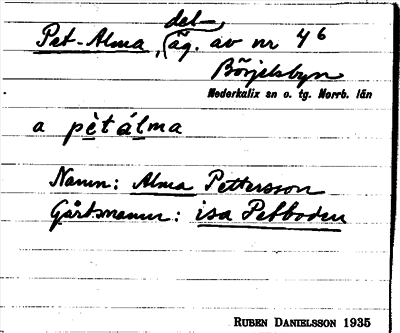 Pet-Alma, (del-äg. av nr 4⁶
Börjelsbyn
Nederkalix sn o. tg. Norrb. län
a pètálma
Namn: Alma Pettersson
Gårdsnamn: isa Petboden
RUBEN DANIELSSON 1935